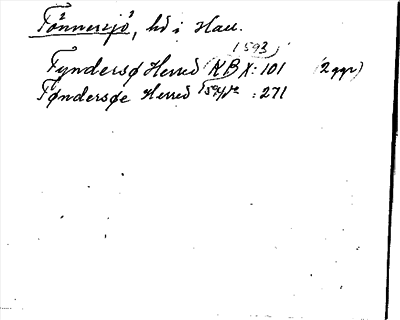 Tönnersjö, hd i Hall.
1593
Fyndersø Herred KB X: 101 (2 ggr)
Tøndersøe Herred 1594 1/2 : 271